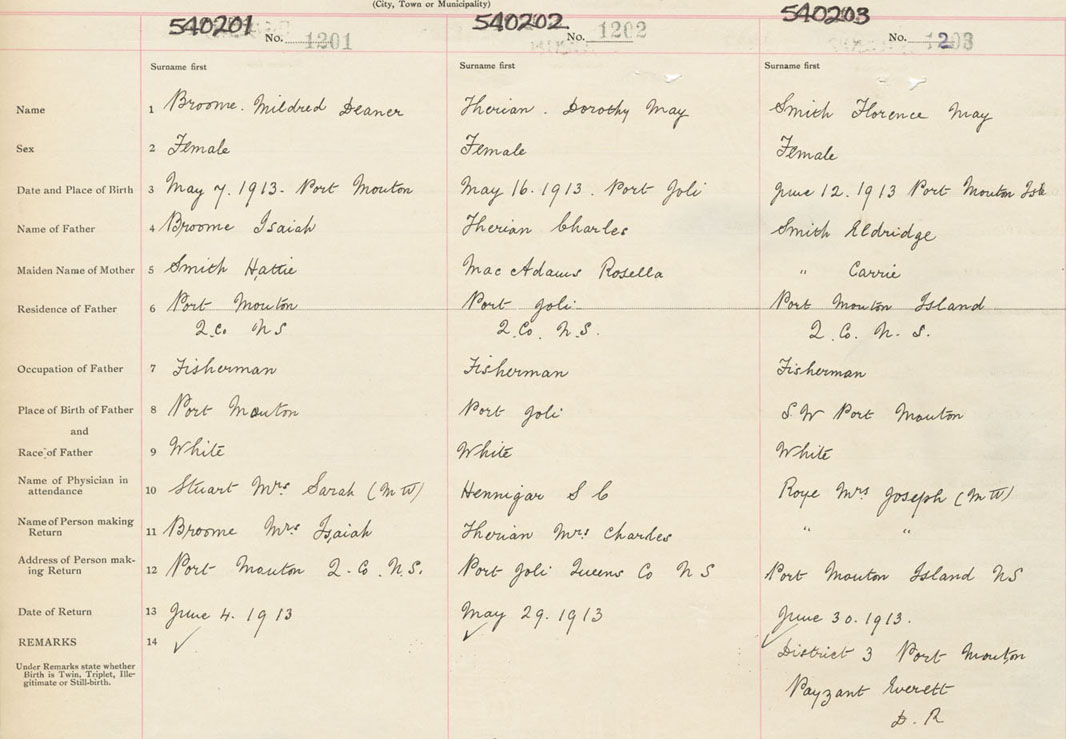 (City, Town or Municipality)
540201 540202 540203
No. 1201 No. 1202 No. 1203
Surname first Surname first Surname first
Name 1 Broome. Mildred Deaner Therian. Dorothy May Smith Florence May
Sex 2 Female Female Female
Date and Place of Birth 3 May 7. 1913- Port Mouton May 16. 1913. Port Joli June 12. 1913 Port Mouton Isle
Name of Father 4 Broome Isaiah Therian Charles Smith Eldridge
Maiden Name of Mother 5 Smith Hattie Mac Adams Rosella " Carrie
Residence of Father 6 Port Mouton Port Joli Port Mouton Island
Q. Co. N S Q. Co. N. S. Q. Co. N. S.
Occupation of Father 7 Fisherman Fisherman Fisherman
Place of Birth of Father 8 Port Mouton Port Joli S. W Port Mouton
and
Race of Father 9 White White White
Name of Physician in
attendance 10 Stuart Mrs Sarah (M W) Hennigar S C Roye Mrs Joseph (M W)
Name of Person making
Return 11 Broome Mrs Isaiah Therian Mrs Charles " "
Address of Person mak-
ing Return 12 Port Mouton Q. Co. N.S. Port Joli Queens Co N S Port Mouton Island NS
Date of Return 13 June 4. 1913 May 29. 1913 June 30. 1913.
REMARKS 14 ✓ ✓ ✓ District 3 Port Mouton
Under Remarks state whether
Birth is Twin, Triplet, Ille-
gitimate or Still-birth.
Payzant Everett
D. R